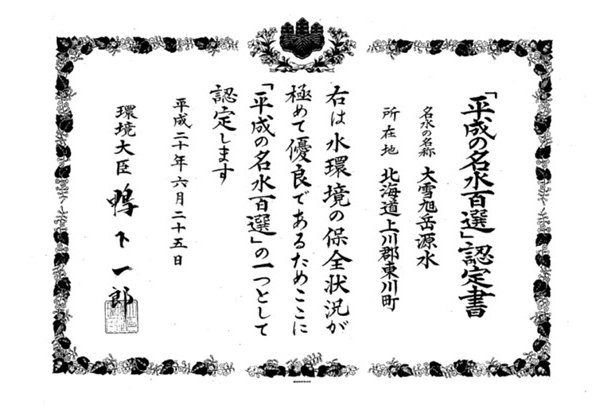 「平成の名水百選」認定書
名水の名称 大雪旭岳源水
所在地 北海道上川郡東川町
右は水環境の保全状況が
極めて優良であるためここに
「平成の名水百選」の一つとして
認定します
平成二十年六月二十五日
環境大臣 鴨下一郎